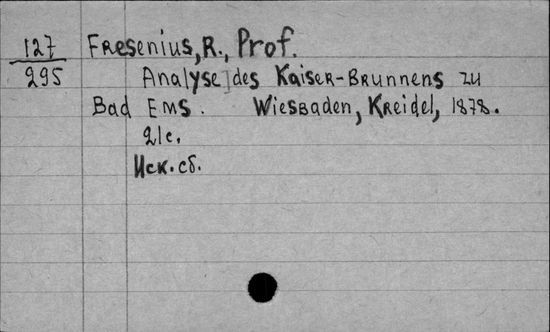 127 Fresenius, R., Prof.
295 Analyse des Kaiser-Brunnens zu
Bad Ems. Wiesbaden, Kreidel, 1878.
21c.
Иск. сб.